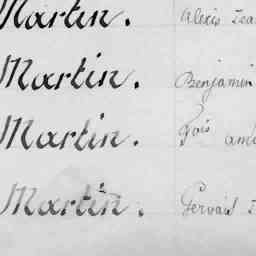 Martin. Alexis
Martin. Benjamin
Martin.
Martin. Gervais